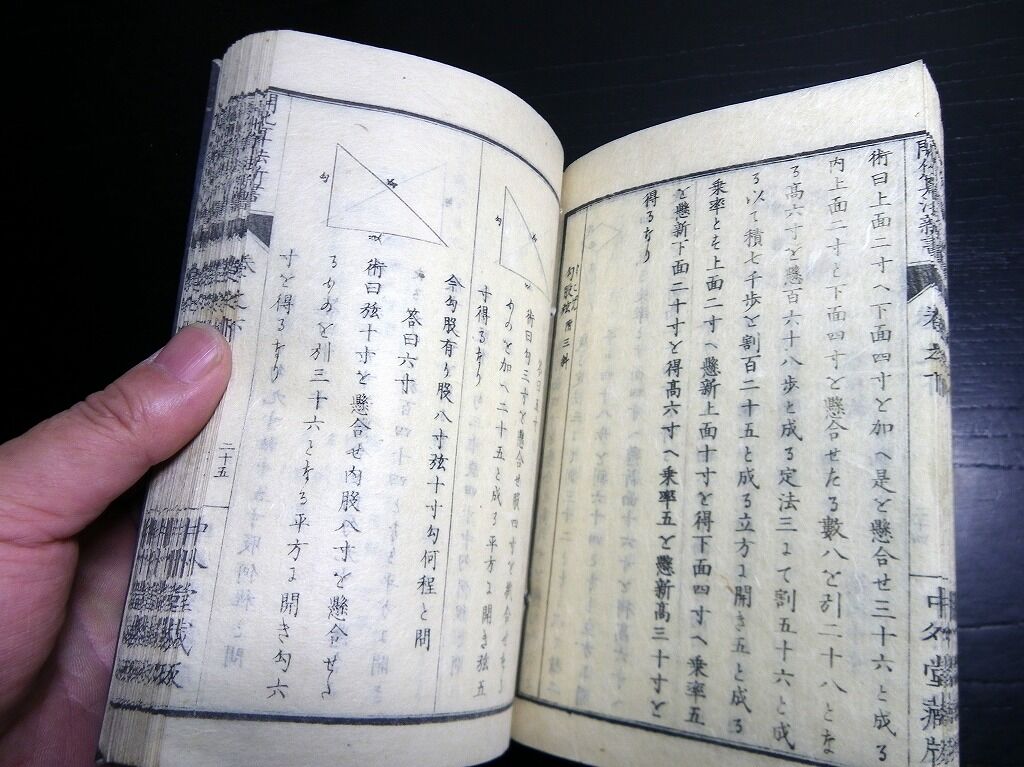 開化算法新書
卷之下
中外堂藏版
術曰上面二寸へ下面四寸を加へ是を懸合せ三十六と成る
内上面二寸と下面四寸と懸合せたる數八を引二十八とな
る高六寸を懸百六十八歩と成る定法三にて割五十六と成
る以て積七千歩を割百二十五と成る立方に開き五と成る
乗率とす上面二寸へ懸新上面十寸を得下面四寸へ乗率五
を懸新下面二十寸を得高六寸へ乗率五を懸新高三十寸を
得るなり
勾股弦
三斜
勾
答曰五寸
術曰勾三寸を懸合せ股四寸を懸合せたる
ものを加へ二十五と成る平方に開き弦五
寸得るなり
今勾股有り股八寸弦十寸勾何程と問
勾
答曰六寸
術曰弦十寸を懸合せ内股八寸を懸合せた
るものを引三十六となる平方に開き勾六
寸を得るなり
二十五